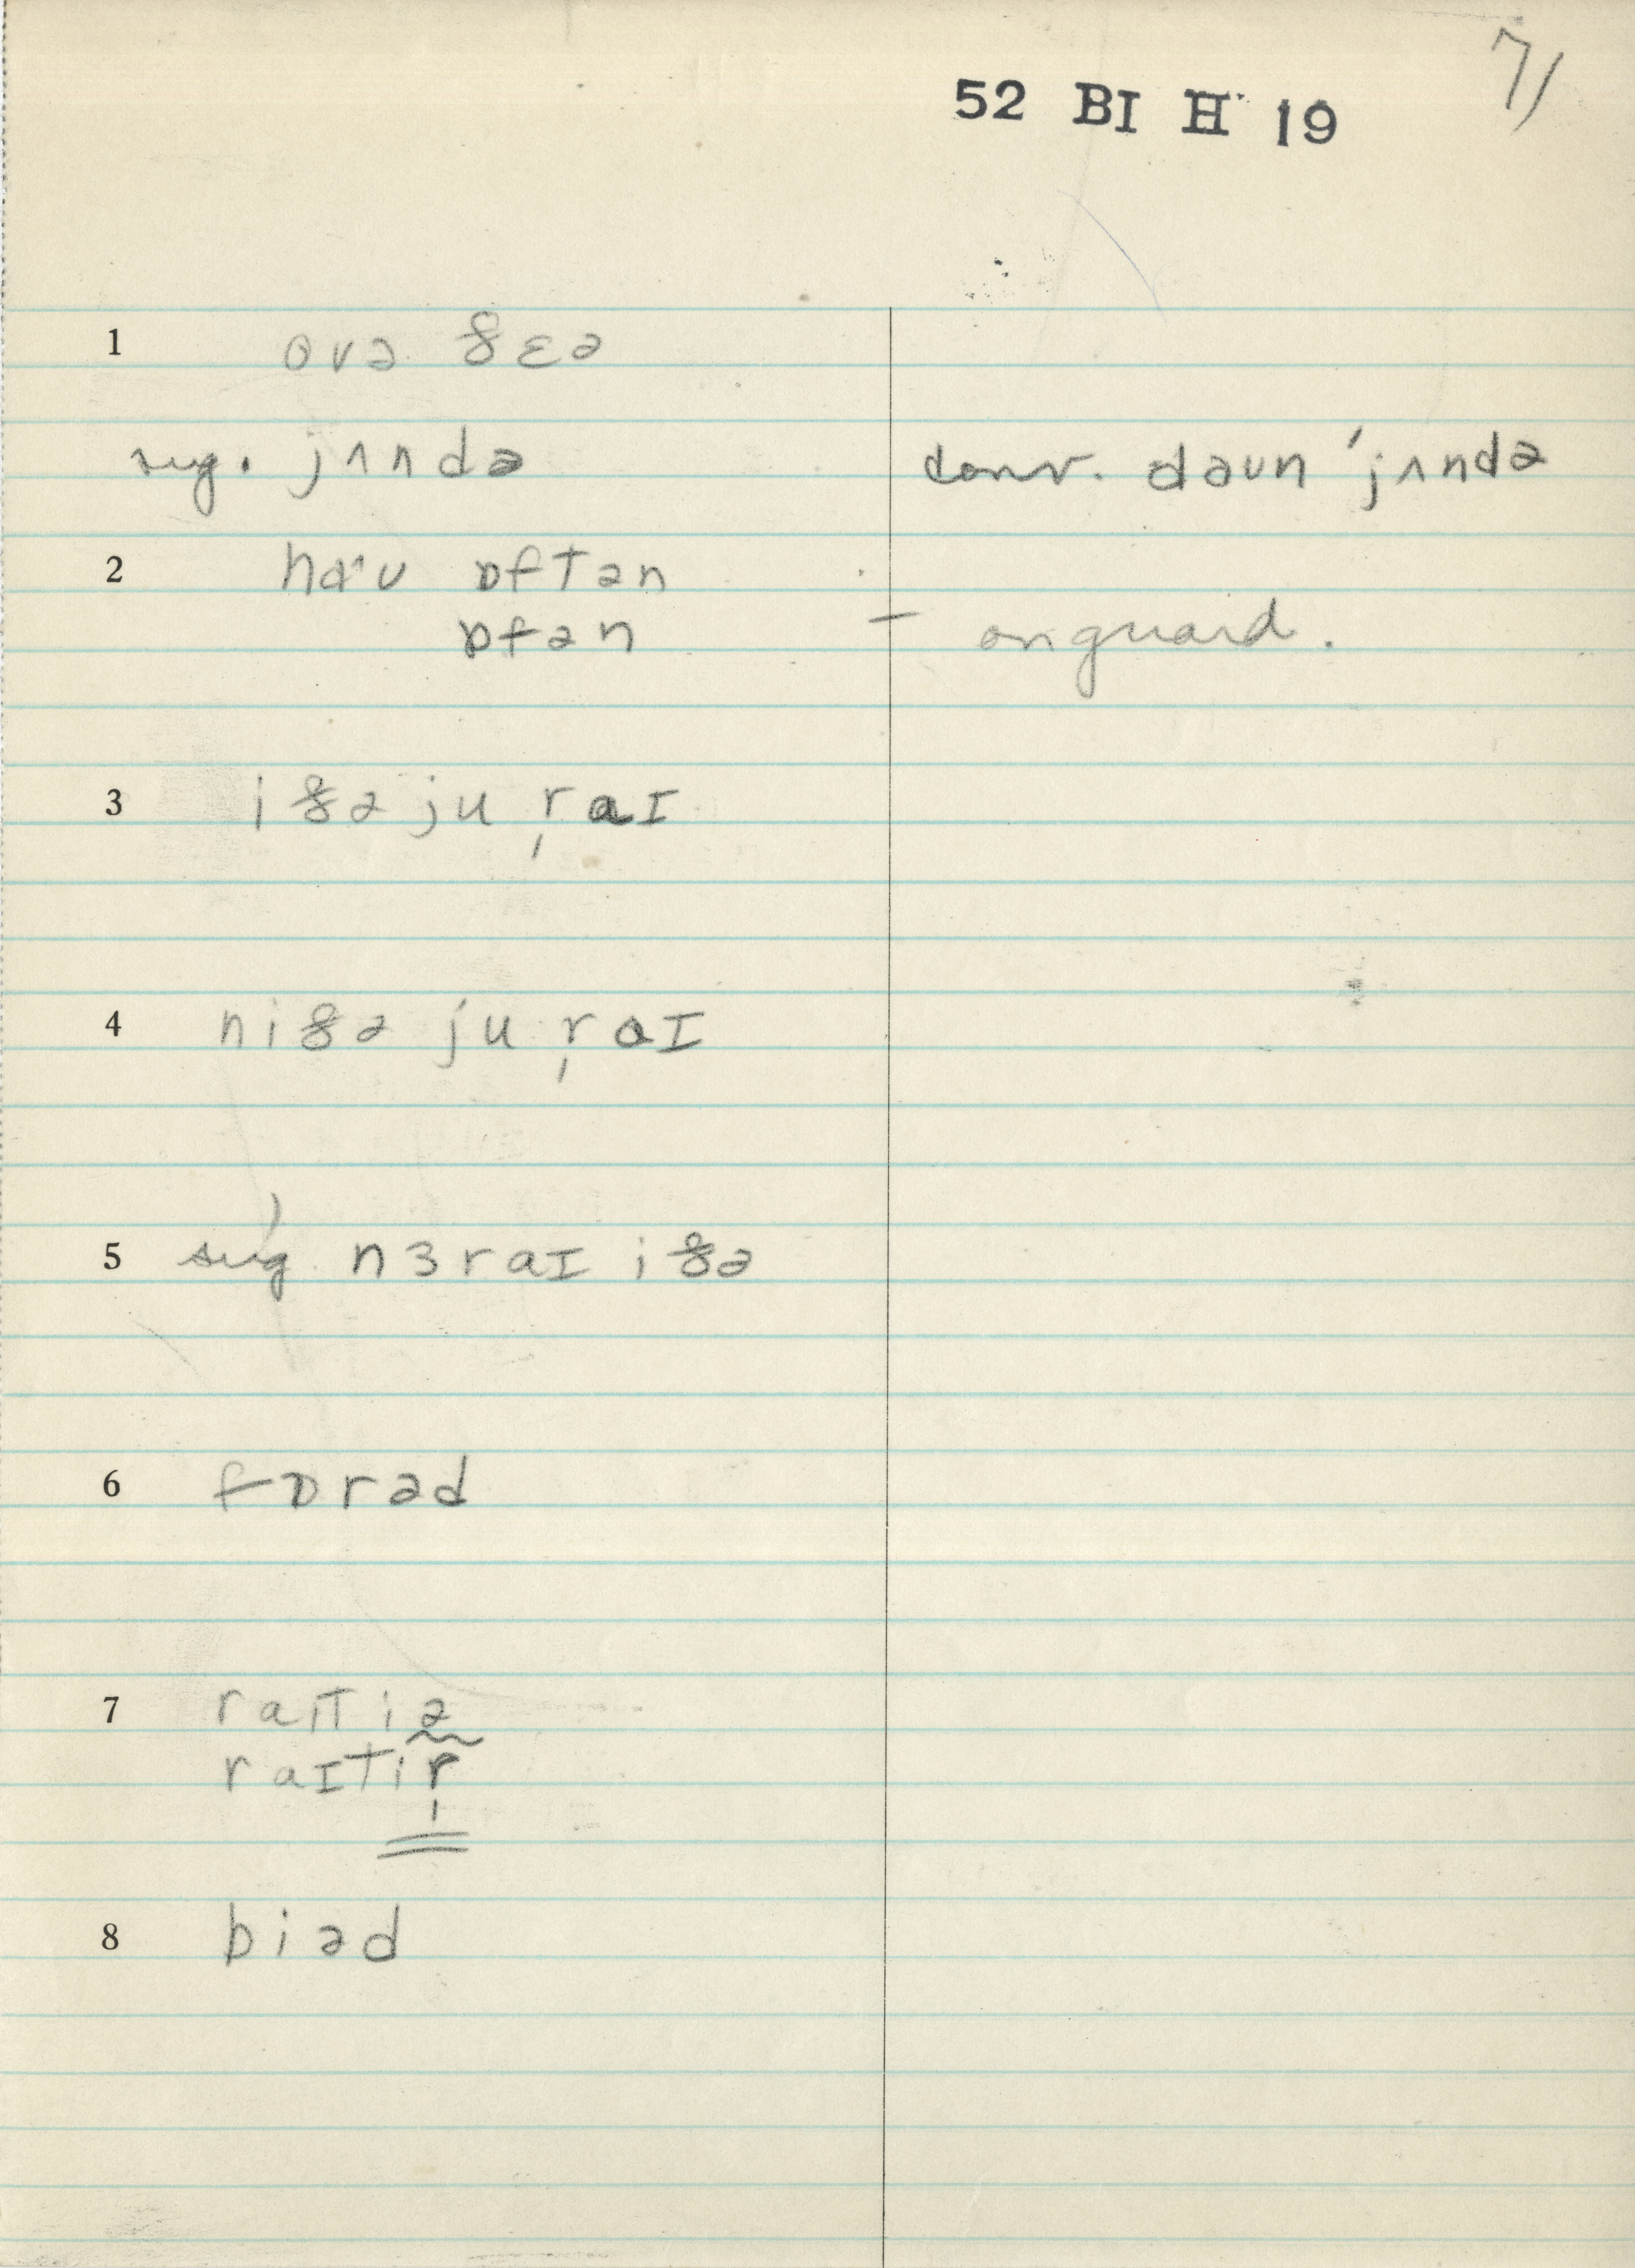 71
52 BI H 19
1 ovə ðɛə
sug. jʌndə conv. daun ˈjʌndə
2 haˑu ɒftən
ɒfən – onguard.
3 iðə ju r̩aɪ
4 niðə ju r̩aɪ
5 sug. nɜraɪ iðə
6 fɒrəd
7 raɪtiə
raɪtir̩
8 biəd